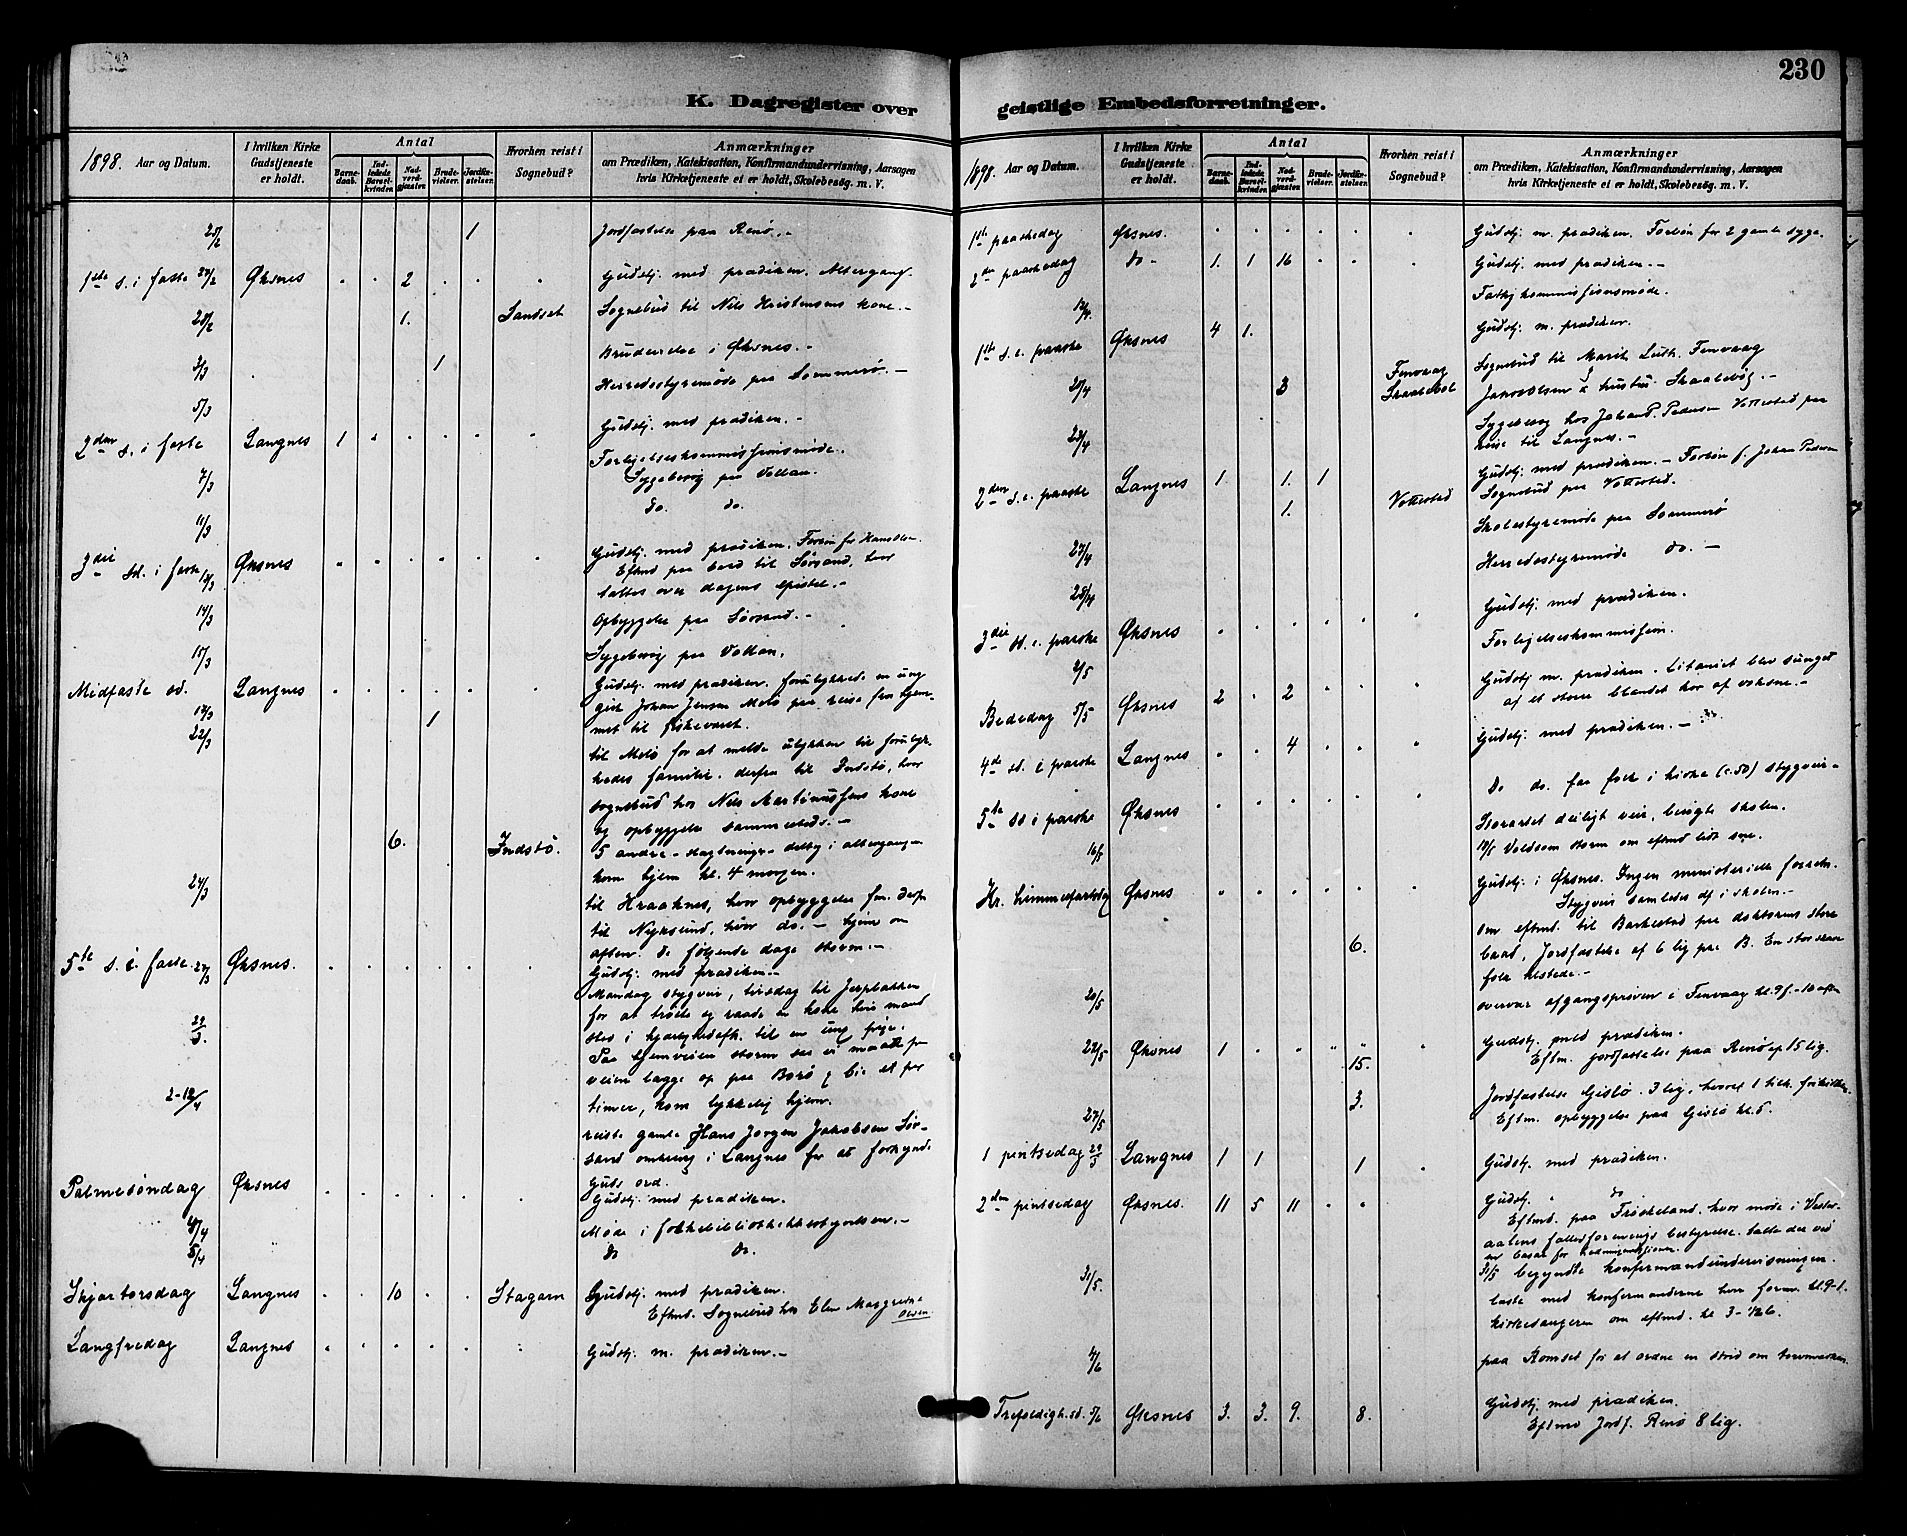 230
K. Dagregister over
geistlige Embedsforretninger.
1898. Aar og Datum.
I hvilken Kirke Gudstjeneste er holdt.
Antal
Barne-daab.
Ind-ledede Barsel-kvinder.
Nad-verd-gjæster.
Brude-vielser.
Jordfæ-stelser.
Hvorhen reist i Sognebud?
Anmærkninger
om Prædiken, Katekisation, Konfirmandundervisning, Aarsagen
hvis Kirketjeneste ei er holdt, Skolebesøg. m. V.
25/2 1 Jordfæstelse paa Renø.-
1ste s. i faste 27/2 Øksnes . . 2 . . . Gudstj. med prædiken. Altergang.
28/2 1. Sandset Sognebud til Nils Kristensens kone.-
3/3 1 Brudevielse i Øksnes.-
Herredsstyremøde paa Sommerø.-
5/3
2den s. i faste Langnes 1 . . . . . Gudstj. med prædiken.-
7/3 Forligelseskommissionsmøde.
Sygebesøg paa Vollan.
11/3 do. do.
3die sd. i faste 13/3 Øksnes . . . . . . Gudstj. med prædiken. Forbøn for Hans Olsen.
Eftmd paa baad til Sørsand, hvor
taltes over dagens epistel.-
14/3 Opbyggelse paa Sørsand.-
15/3 Sygebesøg paa Vollan.
Midfaste sd. Langnes . . . . . . Gudstj. med prædiken. forulykkede en ung
gut Johan Jensen Melø paa reise fra hjem-
17/3 1 met til fiskeværet.
22/3 til Melø for at melde ulykken til forulyk-
kedes familie. derfra til Indstø, hvor
sognebud hos Nils Martinussens kone
og opbyggelse sammesteds.-
6. Indstø. 5 andre - slægtninge - deltog i altergangen
kom hjem kl. 4 morgen.
24/3 til Kraaknes, hvor opbyggelse fm. derfr
til Nyksund, hvor do. - hjem om
aften. de følgende dage storm.-
5te s. i faste 27/3 Øksnes. . . . . . . Gudstj. med prædiken.-
Mandag stygveir, tirsdag til Jerpbakken
for at trøste og raade en kone hvis mand
29/3. stod i kjærlighedsfh. til en ung pige.
Paa hjemveien storm saa vi maatte paa
veien lægge op paa Børø & bie et par
2-12/4 timer, kom lykkelig hjem.
reiste gamle Hans Jørgen Jakobsen Sør-
sand omkring i Langnes for at forkynde
Guds ord.
Palmesøndag Øksnes . . . . . Gudstj. med prædiken.
4/4 Møde i folkebibliothekbestyrelsen.-
5/4 do do.
Skjærtorsdag Langnes . . 10 . . Stagarn Gudstj. med prædiken.
Eftmd. Sognebud hos Elen Margrethe
Olsen
Langfredag Langnes . . . . . . Gudstj. m. prædiken.-
1898. Aar og Datum.
I hvilken Kirke Gudstjeneste er holdt.
Antal
Barne-daab.
Ind-ledede Barsel-kvinder.
Nad-verd-gjæster.
Brude-vielser.
Jordfæ-stelser.
Hvorhen reist i Sognebud?
Anmærkninger
om Prædiken, Katekisation, Konfirmandundervisning, Aarsagen
hvis Kirketjeneste ei er holdt, Skolebesøg. m. V.
1ste paaskedag Øksnes. . . . . . . Gudstj. m. prædiken. Forbøn for 2 gamle syge.
2den paaskedag do - 1. 1 16 . . . Gudstj. med prædiken.-
Fattigkommissionsmøde.
1ste s. e. paaske Øksnes 4 1. Gudstj. m. prædiken.
Sognebud til Marit Leth. Finvaag
20/4 3 Finvaag Skaalebøl Jakob Olsen & hustru Skaalebøl.-
23/4 Sygebesøg hos Johan P. Pedersen Vottestad paa
reise til Langnes.-
2den s. e. paaske Langnes 1 1. 1 Gudstj. med prædiken.- Forbøn f. Johan Pedersen
1. Vottestad Sognebud paa Vottestad.
Skolestyremøde paa Sommerø
27/4 Herredsstyremøde do.-
28/4
3die sd. e. paaske Øksnes . . . . . . Gudstj. med prædiken.
2/5 Forligelseskommission.
Bededag 5/5 Øksnes 2 . 2 . . . Gudstj m. prædiken. Litaniet blev sunget
af et større blandet kor af voksne.-
4de sd. e paaske Langnes . . 4 . . . Gudstj. med prædiken.-
5te sd e paaske Øksnes . . . . . . Do do. faa folk i kirke (c. 50) stygveir-
Storartet deiligt veir, besøgte skolen.
16/5 Voldsom storm om eftmd lidt sne.
Kr. himmelfartsdag Øksnes . . . . . . Gudstj. i Øksnes. Ingen ministerielle forretn.
Stygveir samledes df. i skolen.-
om eftmd. til Barkestad paa doktorens store
6. baad, Jordfæstelse af 6 lig paa B. En stor skare
folk tilstede.-
20/5 overvar afgangsprøven i Finvaag kl. 9 f. - 10 aften
22/5 Øksnes 1 . . . . . Gudstj. med prædiken.
15. Eftm. jordfæstelse paa Renø af 15 lig.
3. Jordfæstelse Gislø. 3 lig, hvoraf 1 tilh. frikirken.
27/5 Eftm. opbyggelse paa Gislø kl. 5.
1 pintsedag 29/5 Langnes 1 1 1 . Gudstj. med prædiken.
2den pintsedag Øksnes. 11 5 11 . . Gudstj. " do
Eftmd. paa Frøskeland, hvor møde i Vester-
aalens fællesforenings bestyrelse. talte der ved
en basar for hedningemissionen.
31/5 31/5 begyndte konfirmandundervisningen.
læste med konfirmanderne hver formd. kl. 9-1.
kirkesangeren om eftmd. kl 3-1/2 6.
4/6 paa Romset for at ordne en strid om torvmarken.
Trefoldigh.sd. 5/6 Øksnes 3. 3. 9. 8. Gudstj. med prædiken.
Eftmd Jordf. Renø 8 lig.